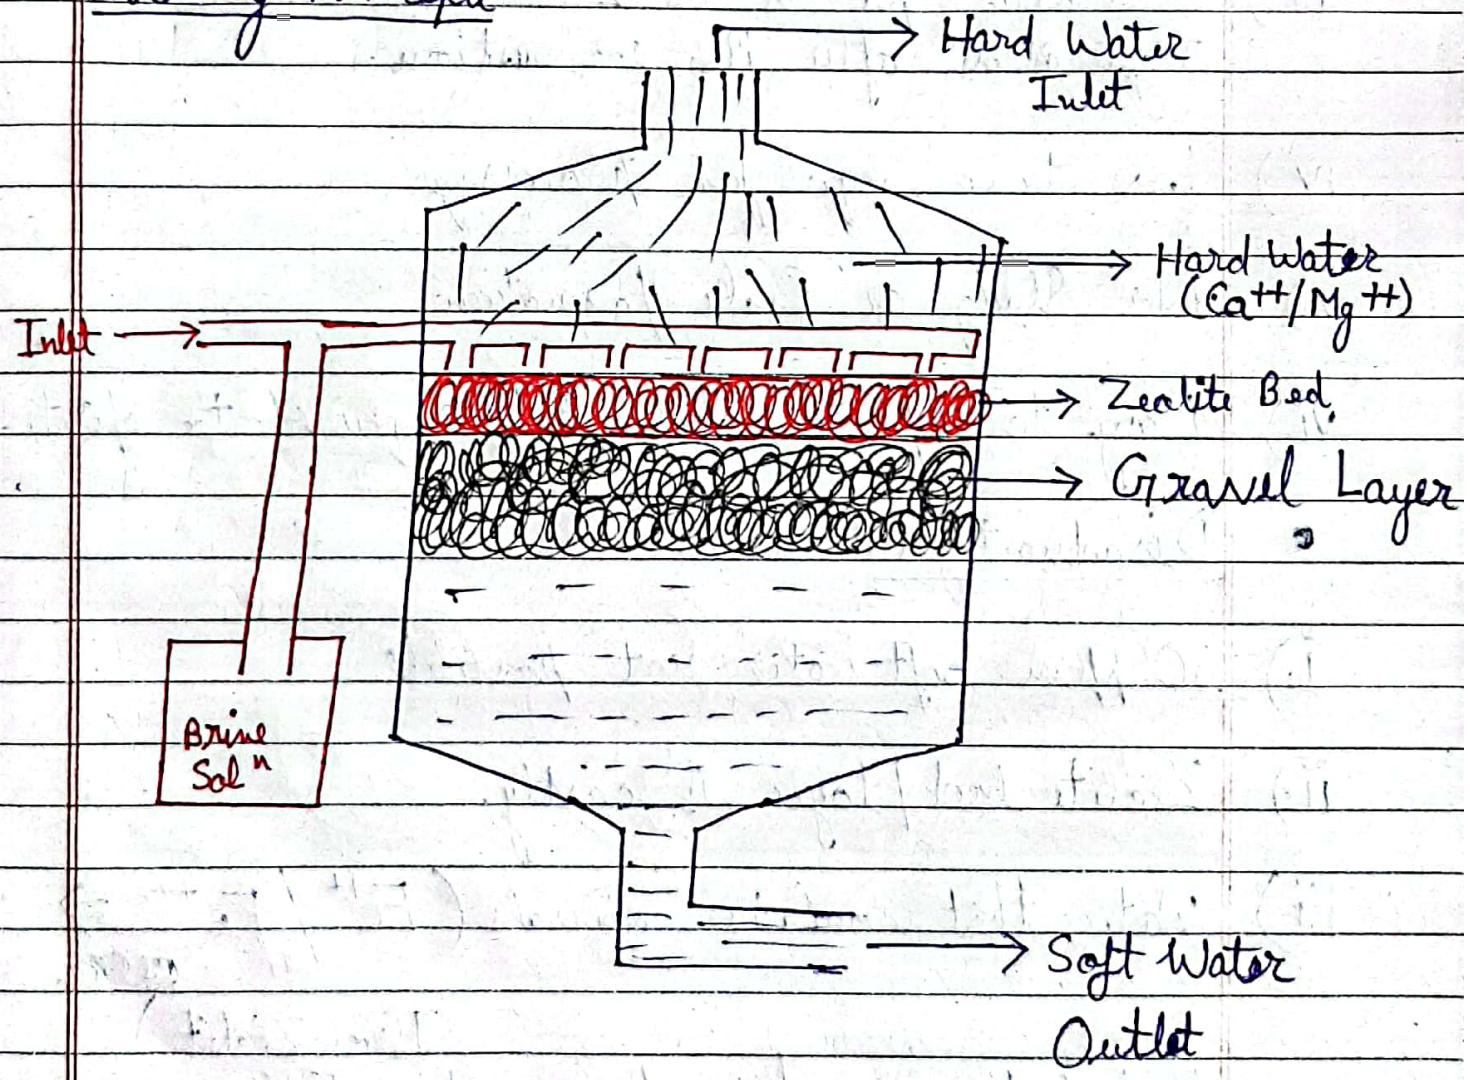 Hard Water
Inlet
Hard Water
(Ca++/Mg++)
Inlet
Zeolite Bed.
Gravel Layer
Brine
Solⁿ
Soft Water
Outlet